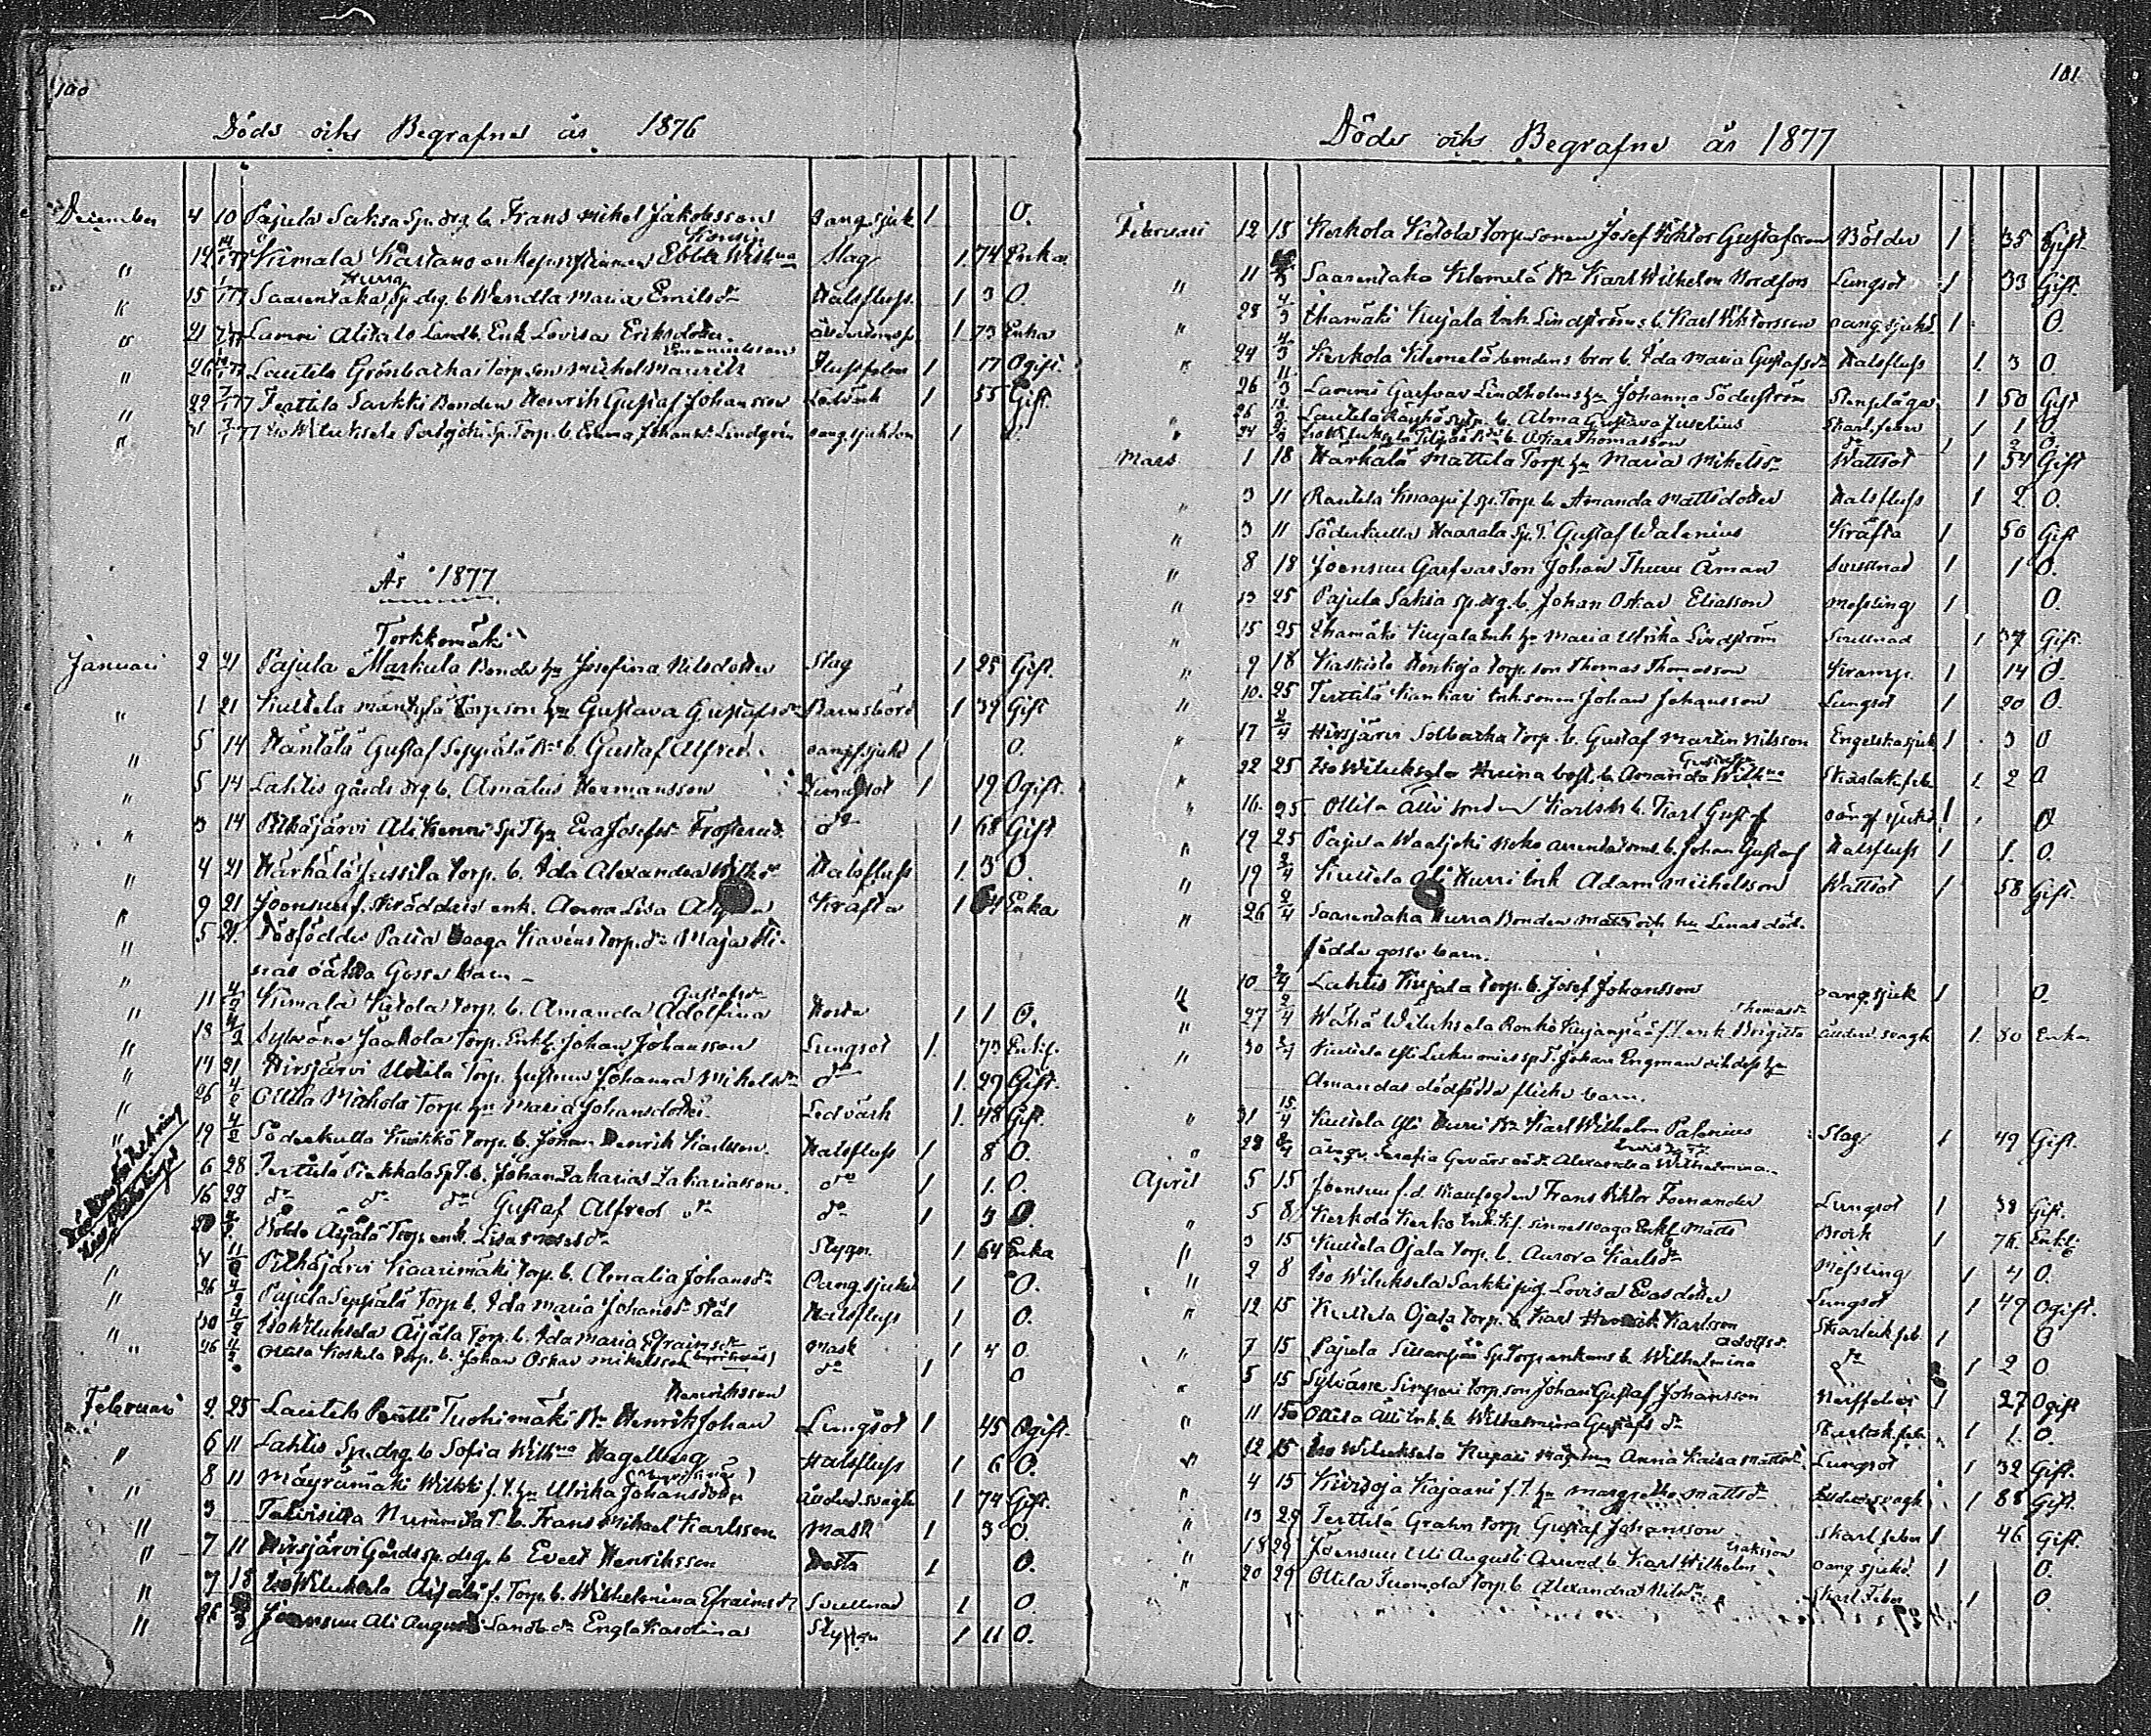 100
Döde och Begrafne år 1876
December 4 10 Pajula Saksa Sp. drg. b. Frans Mikel Jakobsson okäng. sjuk. 1 O.
" 14 14/1 77 Kiimala Kartano enkefru Ebba Wilh:na Slag 1. 74 Enka
Hurra
" 15 1/77 Saarentaka Sp. drg. b. Wendla Maria Emilsd:r Halsfluss. 1 3 O.
" 21 7/1 77 Lammi Alitalo Landb. Enk. Lovisa Eriksdotter. ålderdomss. 1. 73 Enka
Emanuelsson
" 26 14/1 77 Lautela Grönbacka Torp. son Michel Mauritz 1 17 Ogift.
" 29 7/1 77 Terttilä Sarkki Bonden Henrik Gustaf Johansson Ledvärk 1 55 Gift.
" 31 7/1 77 Iso Wiluksela Sp. Torp. b. Emma Johans. Lindgrén oäng. sjukdom 1
År 1877
Torkkomäki
Januari 2 21 Pajula Markula Bonds hu Josefina Nilsdotter Slag 1. 25 Gift.
" 1 21 Kuttela Mäntylä Torp. son hu Gustava Gustafsd:r Barnsbörd 1 39 Gift
" 5 14 Häntälä Gustaf Seppälä b. Gustaf Alfred. oang. sjukd 1 O.
" 5 14 Lahtis gårds drg. b. Amalius Hermansson Lungsot 1 19 Ogift.
" 3 14 Pitkäjärvi Ali Kenni Sp T hu Eva Josefsd:r d:o 1 68 Gift
" 4 21 Härkälä Jussila Torp. b. Ida Alexandra Halsfluss 1. 3 O.
" 9 21 Joensuu f. enk. Anna Lisa Kräfta 1 64 Enka
" 5 21. Dödföddes Palia Torp. d:r Maja
nas oäkta Gosse barn.
Gustafsd:r
" 11 4/2 Kiimala Kiitola Torp. b. Amanda Adolfina Hosta 1 1 O.
" 18 4/2 Sylvänä Jaakola Torp. Enkl. Johan Johansson Lungsot 1. 73 Enkl.
" 14 21 Hirsjärvi Uotila Torp. hustru Johanna Mikelsd:r d:o 1. 29 Gift.
" 26 4/2 Ollila Mickola Torp. hu Maria Johansdotter. Ledvärk 1. 48 Gift.
" 19 4/2 Söderkulla Kuikko Torp. b. Johan Henrik Karlsson. Halsfluss 1 8 O.
6 28 Terttilä Pirkkala Sp T. b. Johan Zakarias Zakariasson. d:o 1 1. O.
16 29 d:o d:o d:o Gustaf Alfred d:o d:o 1 3 O.
Äijälä Torp. enk. Lisa Matsd:r Stygn. 1 64 Enka
" 11 Pitkäjärvi Kaarimäki Torp. b. Amalia Johansd:r Oang. sjukd 1 O.
" 26 4/2 Pajula Seppälä Torp. b. Ida Maria Johansd:r Stål Halsfluss 1 O.
" 30 4/2 Iso Wiluksela Äijälä Torp. b. Ida Maria Efraimsd:r Mask 1 4 O
" 26 4/2 Ollila Koskela Torp. b. Johan Oskar Mikelsson d:o 1 O
Henriksson
Februari 2. 25 Lautela Perttili Tuohimäki Henrik Johan Lungsot 1 45 Ogift.
" 6 11 Lahtis Sp. drg. b. Sofia Wilh:na Hagelberg Halsfluss 1 6 O.
" 8 11 Mäyrämäki Wilkki f. T. hu Ulrika Johansdotter ålderd. svagh. 1 74 Gift.
3 Talvisilta Nummila T. b. Frans Mikael Karlsson Mask 1 3 O.
" 7 11 Hirsjärvi Gårds sp. drg. b. Evert Henriksson Hosta 1 O.
" 7 18 Iso Wiluksela Äijälä f. Torp. b. Wilhelmina Efraimsd:r Svullnad 1 O.
" 26 Joensuu Ali Augusti Landb. d:r Engla Karolina Stygn 1 11 O.
101
Döde och Begrafne år 1877
Februari 12 18 Kerkola Kiitola Torp. sonen Josef Viktor Gustafsson Bölder 1 35 Gift.
" 11 Saarentaka Klemelä Karl Wilhelm Nordfors Lungsot 1 33 Gift.
" 28 4/3 Ihamäki Kujala Inh. Lindströms b. Karl Viktorsson oang. sjukd 1. O.
" 24 4/3 Kerkola Klemelä bondens bror b. Ida Maria Gustafsd:r Halsfluss 1. 3 O
26 11/3 Lammi Garfvar Lindholms hu Johanna Söderström Stenplåga 1 50 Gift
" 26 Lautela b. Alma Gustava Juselius Skarl. feber 1 1 O
" 24 Iso Wiluksela b. Oskar Thomasson d:o 1 2 O.
Mars 1 18 Härkälä Mattila Torp. hu Maria Mikelsd:r Wattsot 1 54 Gift
" 3 11 Rautela Knaapi f. sp. Torp. b. Amanda Mattsdotter Halsfluss 1 2. O.
" 3 11 Söderkulla Haarala Sp. T. Gustaf Walenius Kräfta 1 50 Gift
" 8 18 Joensuu Garfvar son Johan Thure Åman Svullnad 1 1 O.
" 13 25 Pajula Saksa sp. drg. b. Johan Oskar Eliasson Messling 1 O.
" 15 25 Ihamäki Kujala Inh. hu Maria Ulrika Lindström Svullnad 1 37 Gift.
" 9 18 Kaskisto Honkoja Torp. son Thomas Thomasson Kramp. 1 14 O.
" 10. 25 Terttilä Kankari Inh. sonen Johan Johansson Lungsot 1 20 O.
" 17 2/4 Hirsjärvi Solbacka Torp. b. Gustaf Martin Nilsson Engelska sjuk 1 3 O
Gustafsd:r
" 22 25 Iso Wiluksela Huina b. Amanda Wilh:na Skarlak. feb. 1. 2 O
" 16. 25. Ollila Älli b. Karl Gustaf oäng. sjukd. 1 O
" 19 25 Pajula Waaljoki arrendatorns b. Johan Gustaf Halsfluss 1 1. O.
" 19 2/4 Kuttela Ali Hurri Inh. Adam Michelsson Wattsot 1 58 Gift.
" 26 2/4 Saarentaka Hurra Bonden Matts och hu Lenas död-
födde gosse barn.
" 10 2/4 Lahtis Kujala Torp. b. Josef Johansson oang. sjuk 1 O.
Thomasd:r
" 27 2/4 Wähä Wiluksela Ronko Kujanpää f. T. enk. Brigitta ålderd. svagh 1. 80 Enka
" 30 2/4 Kuttela Yli Liekunnies sp T. Johan Engman och dess hu
Amandas dödfödda flicke barn.
" 31 15/4 Kuttela Yli Hurri Karl Wilhelm Palenius Slag 1 49 Gift.
" 28 8/4 Serafia oä d. Alexandra Wilhelmina.
April 5 15 Joensuu f. d. Kronfogden Frans Viktor Forsander Lungsot 1 38 Gift.
" 5 8 Kerkola Kerko Inh. sinnessvaga Enkl. Matts Bråck 1 76. Enkl.
" 3 15 Kuttela Ojala Torp. b. Aurora Karlsd:r Messling 1 4 O.
" 2 8 Iso Wiluksela Sarkki pig. Lovisa Evasdotter Lungsot 1 49 Ogift.
" 12 15 Kuttela Ojala Torp. b. Karl Henrik Karlsson Skarlak. feb. 1 O
Adolfsd.
" 7 15 Pajula Sillanpää Sp Torp enkans b. Wilhelmina d:o 1 2 O
" 5 15 Sylvänä Simperi Torp. son Johan Gustaf Johansson Nerffeber 1 27 Ogift
" 11 15 Ollila Älli Inh. b. Wilhelmina Gustafsd:r Skarlak. feb. 1 1. O.
" 12 15 Iso Wiluksela Kupari Anna Kaisa Mattsd. Lungsot 1 32 Gift.
" 4 15 Kivisoja Kajaani f. T. hu Margretha Mattsd:r Ålderd. svagh. 1 88 Gift.
" 13 29 Terttilä Grahn Torp. Gustaf Johansson Skarl. feber 1 46 Gift.
Eriksson
" 18 29 Joensuu Ali Augusti Arrend. b. Karl Wilhelm oang. sjukd. 1 O.
" 20 29 Ollila Tuomola Torp. b. Alexandra Nilsd:r Skarl. Feber 1 O.